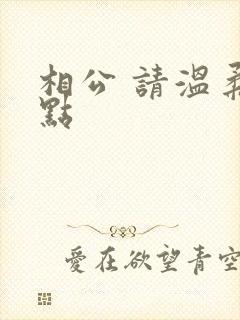 相公 請溫柔
點
愛在欲望青空